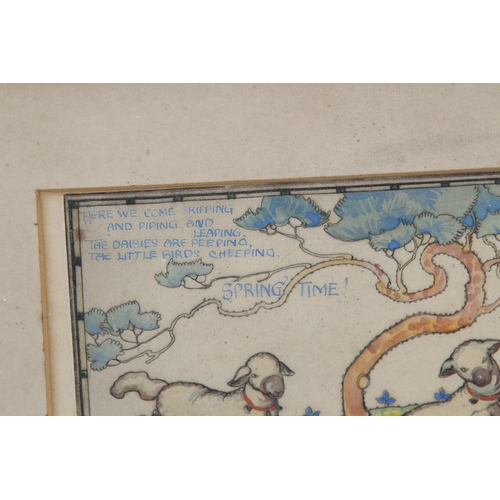 HERE WE COME SKIPPING
AND PIPING AND
LEAPING,
THE DAISIES ARE PEEPING,
THE LITTLE BIRDS CHEEPING,
SPRING TIME!